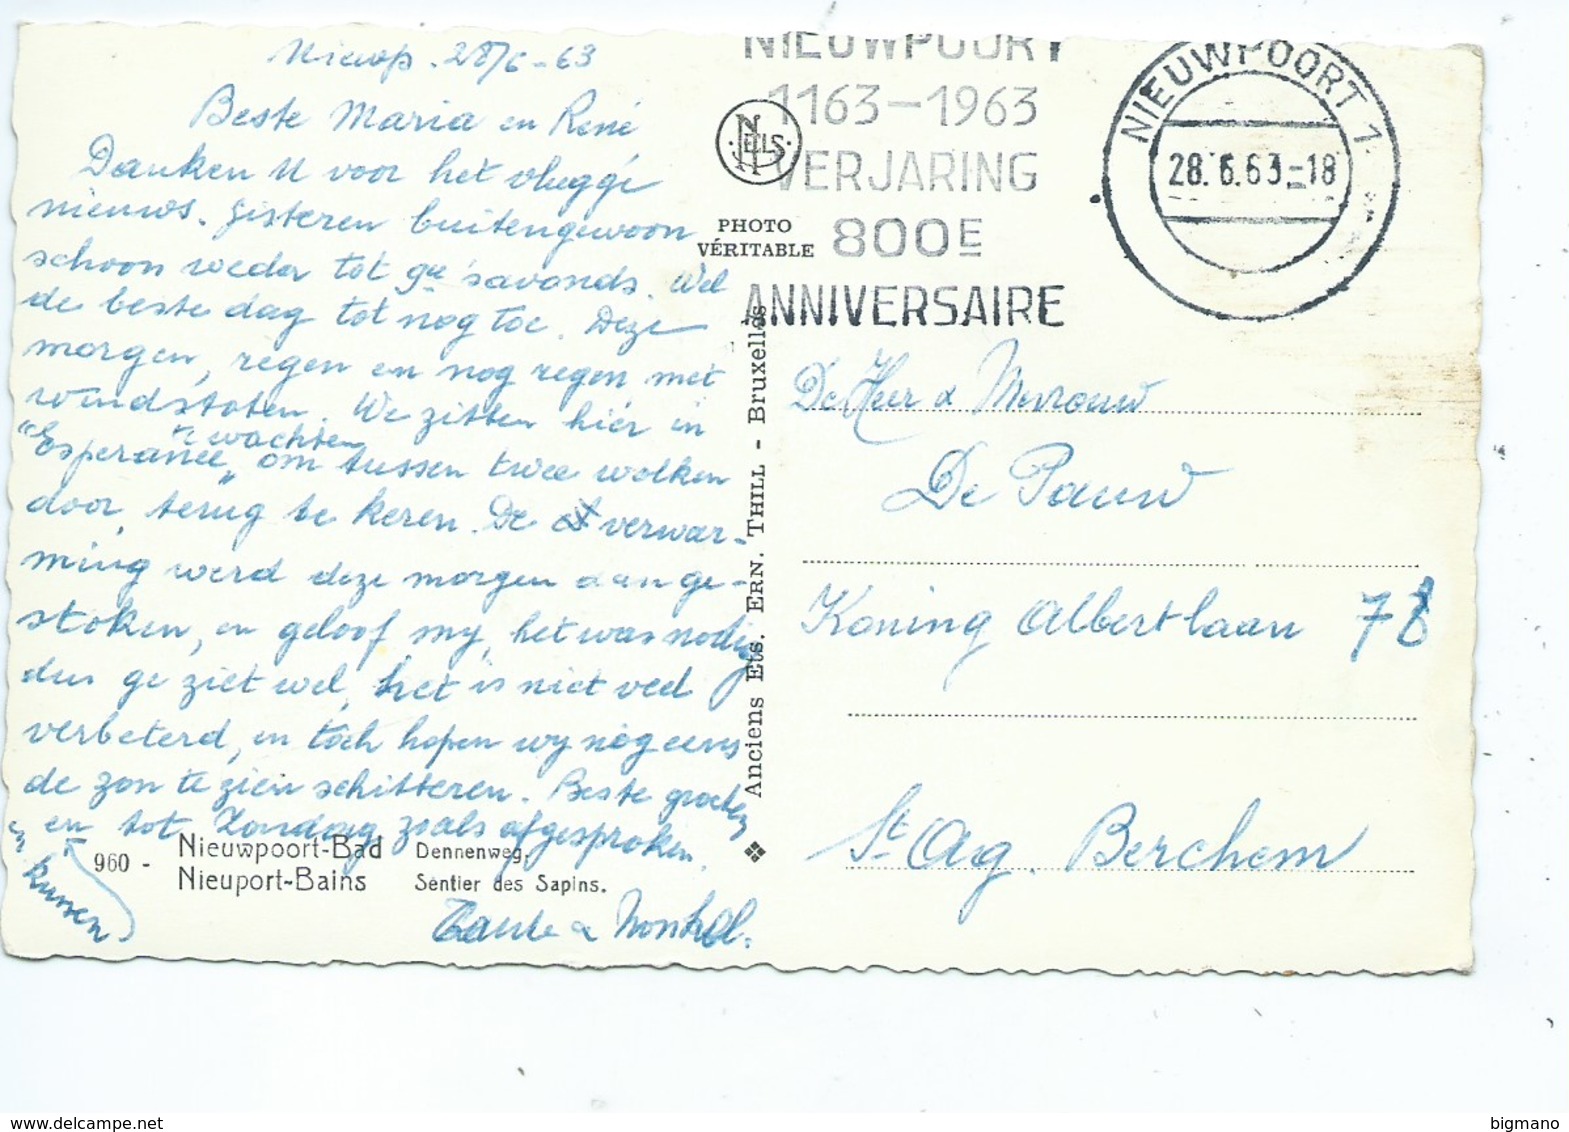 Nieuwp. 28/6-63
Beste Maria en René
Danken U voor het vlugge
nieuws. Gisteren buitengewoon
schoon weder tot 9ur 'savonds. Wel
de beste dag tot nog toe. Deze
morgen, regen en nog regen, met
windstoten. We zitten hier in
te wachten
"Esperance" om tussen twee wolken
door, terug te keren. De verwar-
ming werd deze morgen aange-
stoken, en geloof my, het was nodig
dus ge ziet wel, het is niet veel
verbeterd, en toch hopen wy nog eens
de zon te zien schitteren. Beste groeten
en tot Zondag zoals afgesproken.
en kussen
Tante & Nonkel.
960 - Nieuwpoort-Bad Dennenweg.
Nieuport-Bains Sentier des Sapins.
NELS
PHOTO
VÉRITABLE
Anciens Ets. ERN. THILL - Bruxelles
NIEUWPOORT
1163-1963
VERJARING
800E
ANNIVERSAIRE
NIEUWPOORT 1
28.6.63-18
De Heer & Mevrouw
De Pauw
Koning Albertlaan 78
St Ag. Berchem
www.delcampe.net
bigmano